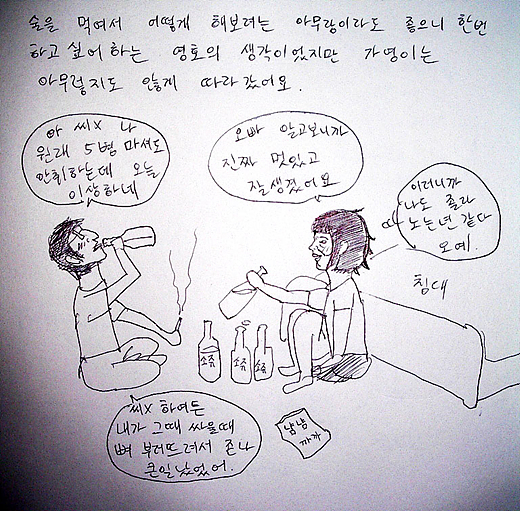 술을 먹여서 어떻게 해보려는 아무랑이라도 좋으니 한번
하고 싶어 하는 영토의 생각이었지만 가영이는
아무렇지도 않게 따라갔어요.
아 씨X 나
원래 5병 마셔도
안취하는데 오늘
이상하네
오빠 알고보니까
진짜 멋있고
잘생겼어요
이러니까
나도 졸라
노는년 같다
오예.
침대
소쥬
소쥬
소쥬
씨X 하여튼
내가 그때 싸울때
뼈 부러뜨려서 존나
큰일났었어.
냠냠
까까